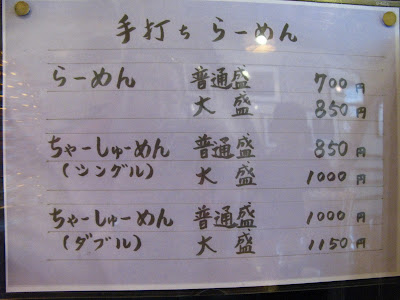 手打ちらーめん
らーめん 普通盛 700円
大盛 850円
ちゃーしゅーめん 普通盛 850円
(シングル) 大盛 1000円
ちゃーしゅーめん 普通盛 1000円
(ダブル) 大盛 1150円